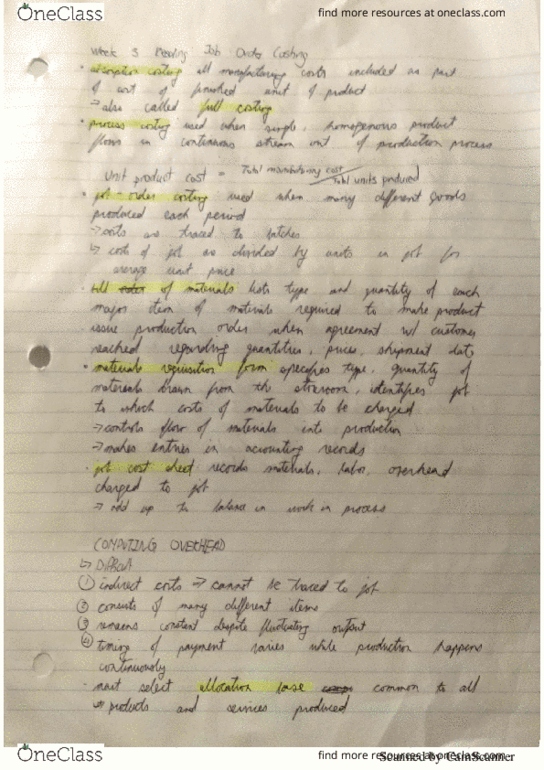 OneClass
find more resources at oneclass.com
Week 3 Reading Job Order Costing
· absorption costing all manufacturing costs included as part
of cost of finished unit of product
→ also called full costing
· process costing used when single, homogenous product
flows in continuous stream unit of production process
Unit product cost = Total manufacturing cost / Total units produced
· job-order costing used when many different goods
produced each period
→ costs are traced to batches
↳ costs of job are divided by units in job for
average unit price
· bill of materials lists type and quantity of each
major item of materials required to make product
issue production order when agreement w/ customer
reached regarding quantities, prices, shipment date
· materials requisition form specifies type, quantity of
materials drawn from the storeroom, identifies job
to which costs of materials to be charged
→ controls flow of materials into production
→ makes entries in accounting records
· job cost sheet records materials, labor, overhead
charged to job
→ add up to balance in work in process
COMPUTING OVERHEAD
↳ Difficult
① indirect costs → cannot be traced to job
② consists of many different items
③ remains constant despite fluctuating output
④ timing of payment varies while production happens
continuously
· must select allocation base common to all
products and services produced
OneClass
find more resources at oneclass.com
Scanned by CamScanner